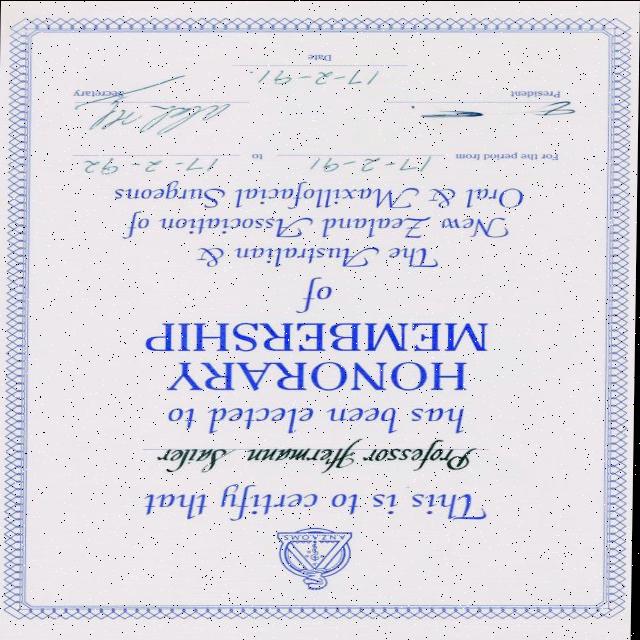 ANZAOMS
This is to certify that
Professor Hermann Sailer
has been elected to
HONORARY
MEMBERSHIP
of
The Australian &
New Zealand Association of
Oral & Maxillofacial Surgeons
For the period from 17-2-91 to 17-2-92
President Secretary
17-2-91.
Date